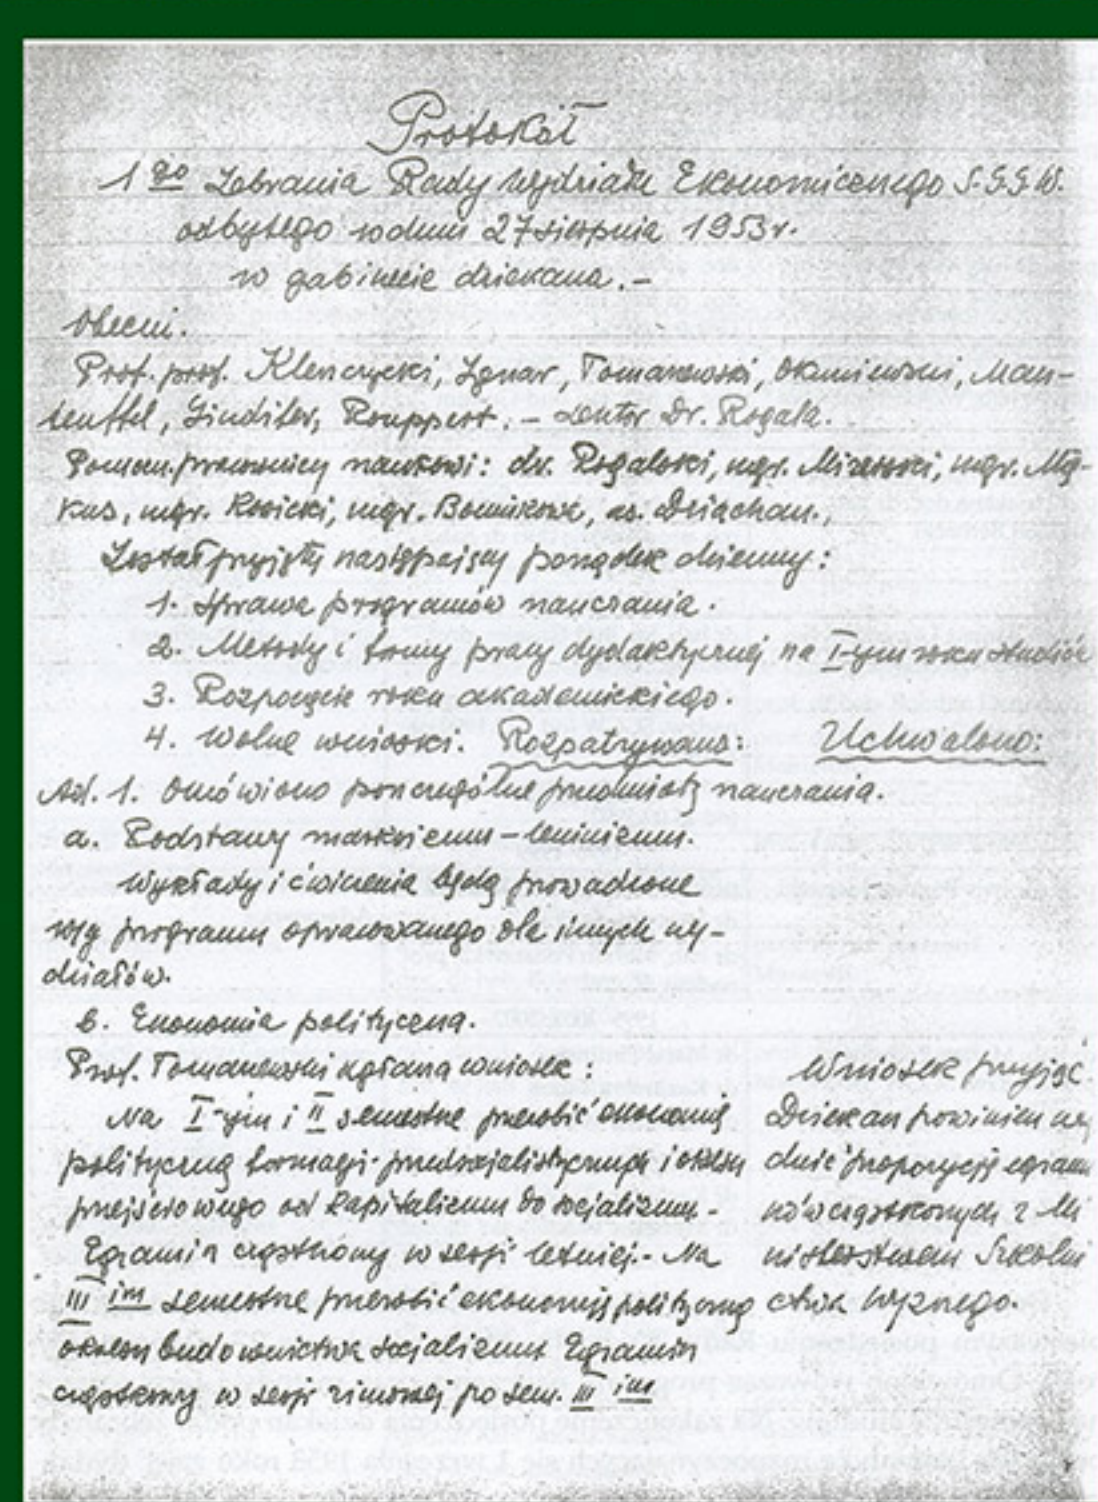 Protokół
1go Zebrania Rady Wydziału Ekonomicznego S.G.G.W.
odbytego w dniu 27 sierpnia 1953 r.
w gabinecie dziekana.-
Obecni.
Prof. prof. Klenczycki, Ignar, Tomaszewski, Okuniewski, Man-
teuffel, Rouppert.- Dr. Rogala.
Pomocn. pracownicy naukowi: dr. Rogalski, mgr. mgr.
kus, mgr. Kosicki, mgr. as. Dziachan.,
Został przyjęty następujący porządek dzienny:
1. Sprawa programów nauczania.
2. Metody i formy pracy dydaktycznej na I-ym roku studiów
3. Rozpoczęcie roku akademickiego.
4. Wolne wnioski. Rozpatrywano: Uchwalono:
Ad. 1. Omówiono poszczególne przedmioty nauczania.
a. Podstawy marksizmu-leninizmu.
Wykłady i ćwiczenia będą prowadzone
wg programu opracowanego dla innych wy-
działów.
b. Ekonomia polityczna.
Prof. Tomaszewski zgłasza wniosek:
Na I-ym i II semestrze przerobić ekonomię
polityczną formacji przedsocjalistycznych i okresu
przejściowego od kapitalizmu do socjalizmu.-
Egzamin cząstkowy w sesji letniej.- Na
III im semestrze przerobić ekonomię polityczną
okresu budownictwa socjalizmu Egzamin
cząstkowy w sesji zimowej po sem. III im
Wniosek przyjąć.
Dziekan powinien uzg
dnić propozycję egzami
nów cząstkowych z Mi
nisterstwem Szkolni
ctwa Wyższego.